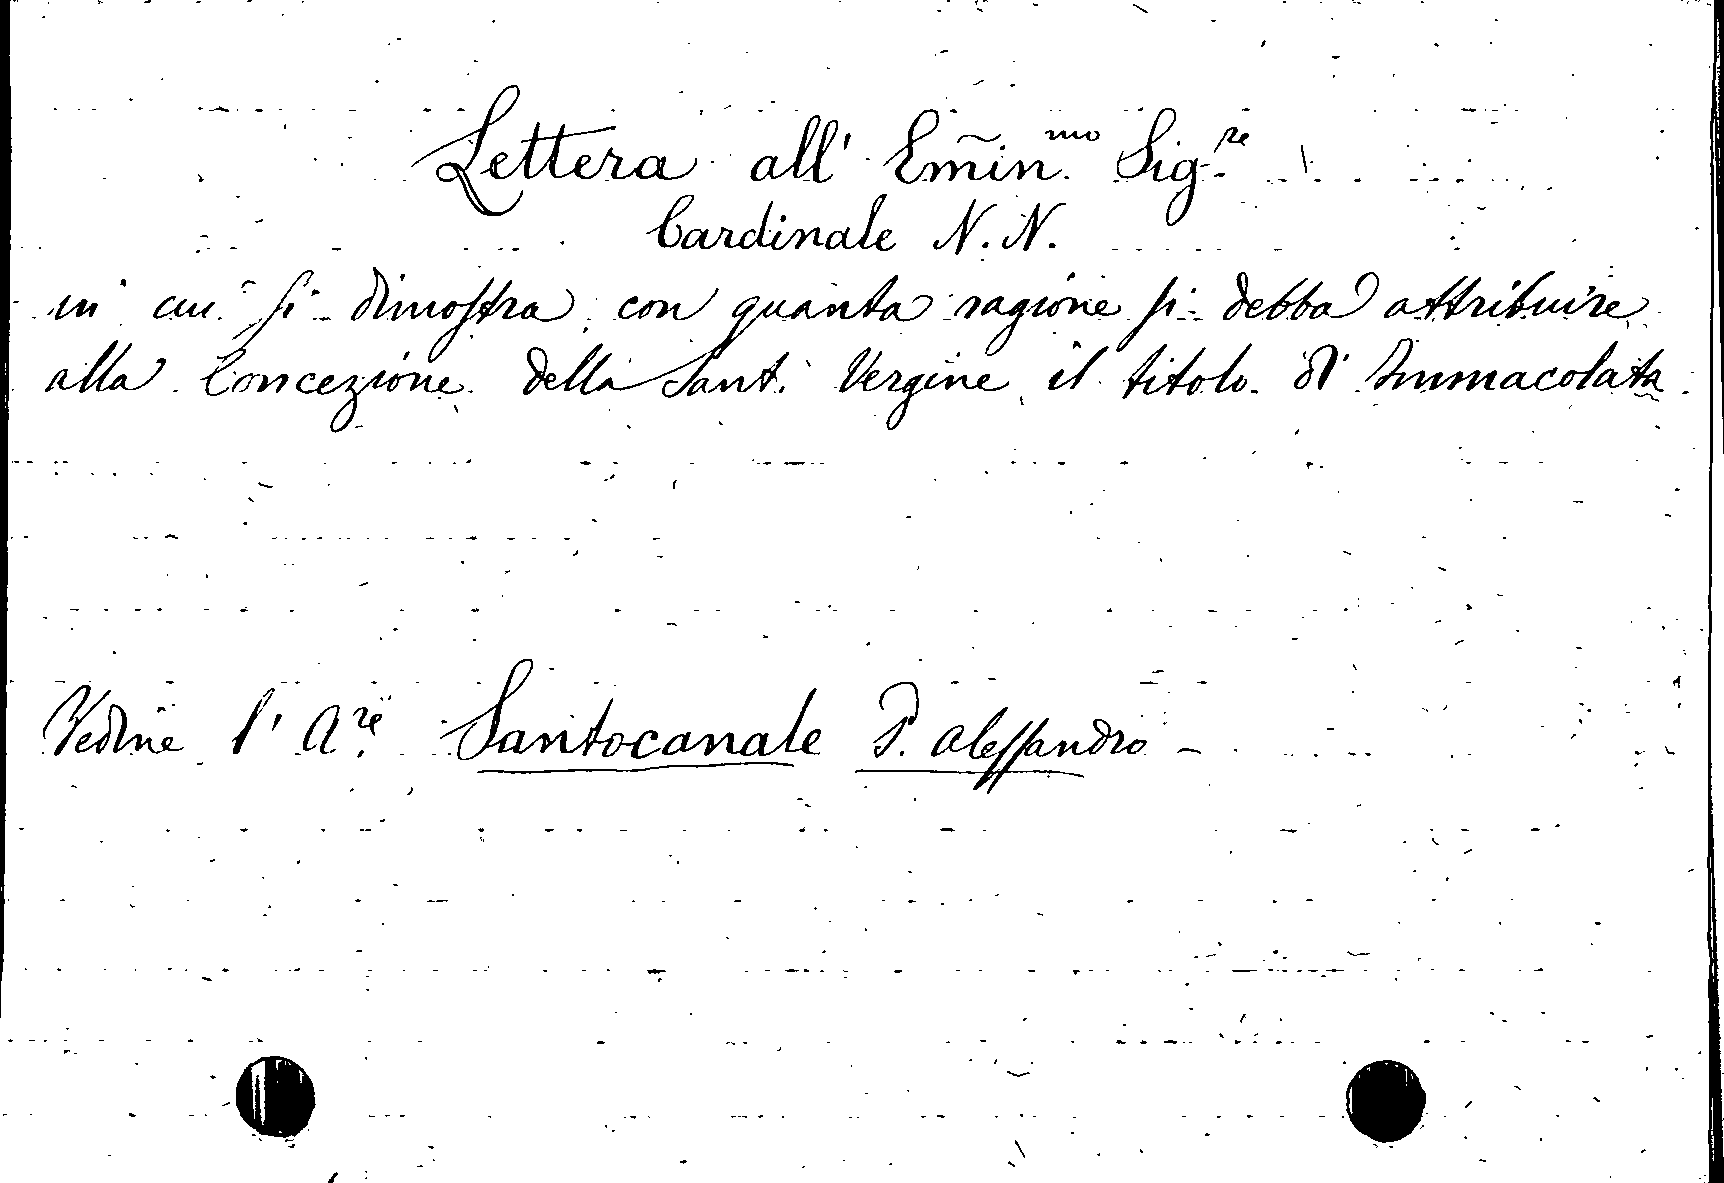 Lettera all' Em̃in.mo Sig.re
Cardinale N. N.
in cui si dimostra con quanta ragione si debba attribuire
alla Concezione della Sant. Vergine il titolo d'Immacolata
Vedine l'A.re Santocanale P. Alessandro -